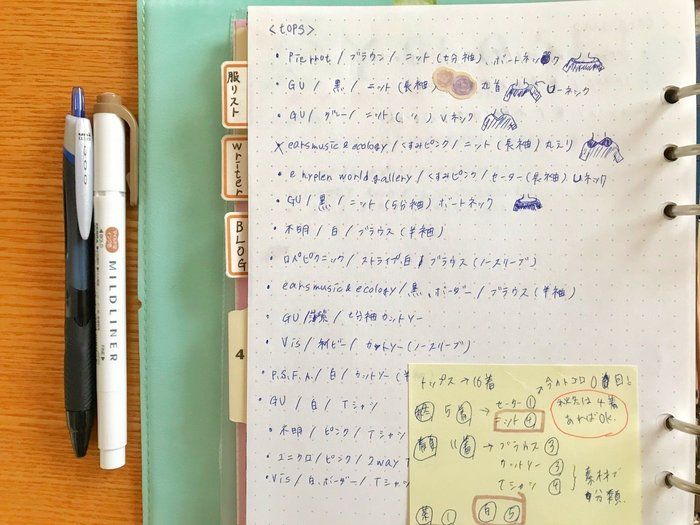 服リスト
writer
BLOG
4
MILDLINER
<tops>
・Pierrot / ブラウン / ニット (七分袖) ボートネック
・GU / 黒 / ニット (長袖) 丸首 Uネック
・GU / グレー / ニット (〃) Vネック
×earsmusic & ecology / くすみピンク / ニット (長袖) 丸えり
・e hyphen world gallery / くすみピンク / セーター (長袖) Uネック
・GU / 黒 / ニット (5分袖) ボートネック
・不明 / 白 / ブラウス (半袖)
・ロペピクニック / ストライプ白 / ブラウス (ノースリーブ)
・earsmusic & ecology / 黒、ボーダー / ブラウス (半袖)
・GU / 七分袖カットソー
・Vis / ネイビー / カットソー (ノースリーブ)
・P.S.F.A. / 白 / カットソー (半
・GU / 白 / Tシャツ
・不明 / ピンク / Tシャツ
・ユニクロ / ピンク / 2way T
・Vis / 白、ボーダー / Tシャツ
トップス→16着
5着 → セーター①
ニット④
秋冬は4着
あればOK.
11着 → ブラウス③
カットソー③
Tシャツ④
素材で
分類
黒① 白⑤